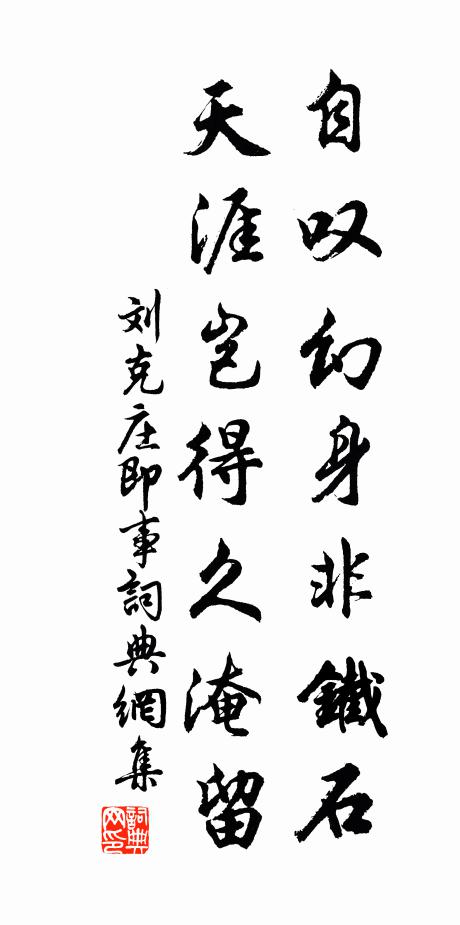 自叹幻身非鐵石
天涯岂得久淹留
刘克庄即事詞典網集
詞典网印